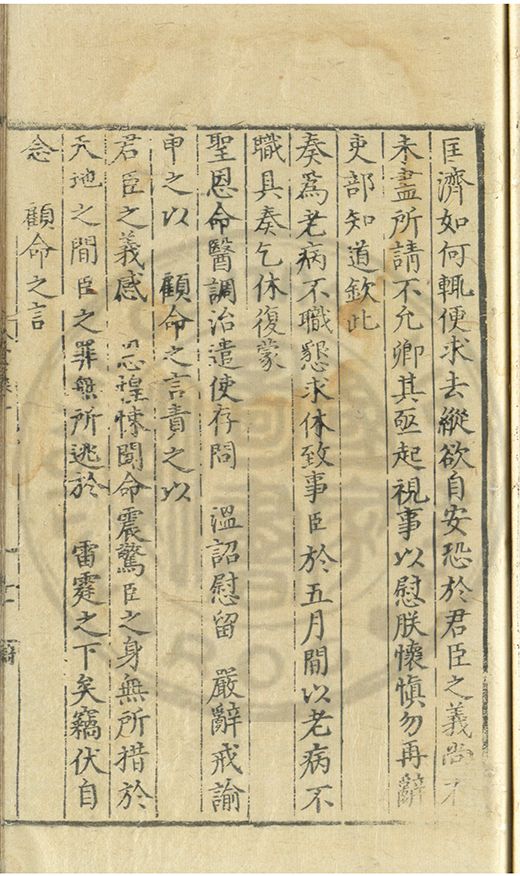 匡濟如何輒便求去縱欲自安恐於君臣之義尚有
未盡所請不允卿其亟起視事以慰朕懷慎勿再辭
吏部知道欽此
奏爲老病不職懇求休致事臣於五月間以老病不
職具奏乞休復蒙
聖恩命醫調治遣使存問　溫詔慰留　嚴辭戒諭
申之以　顧命之言責之以
君臣之義感　忝惶悚聞命震驚臣之身無所措於
天地之間臣之罪無所逃於　雷霆之下矣竊伏自
念　顧命之言